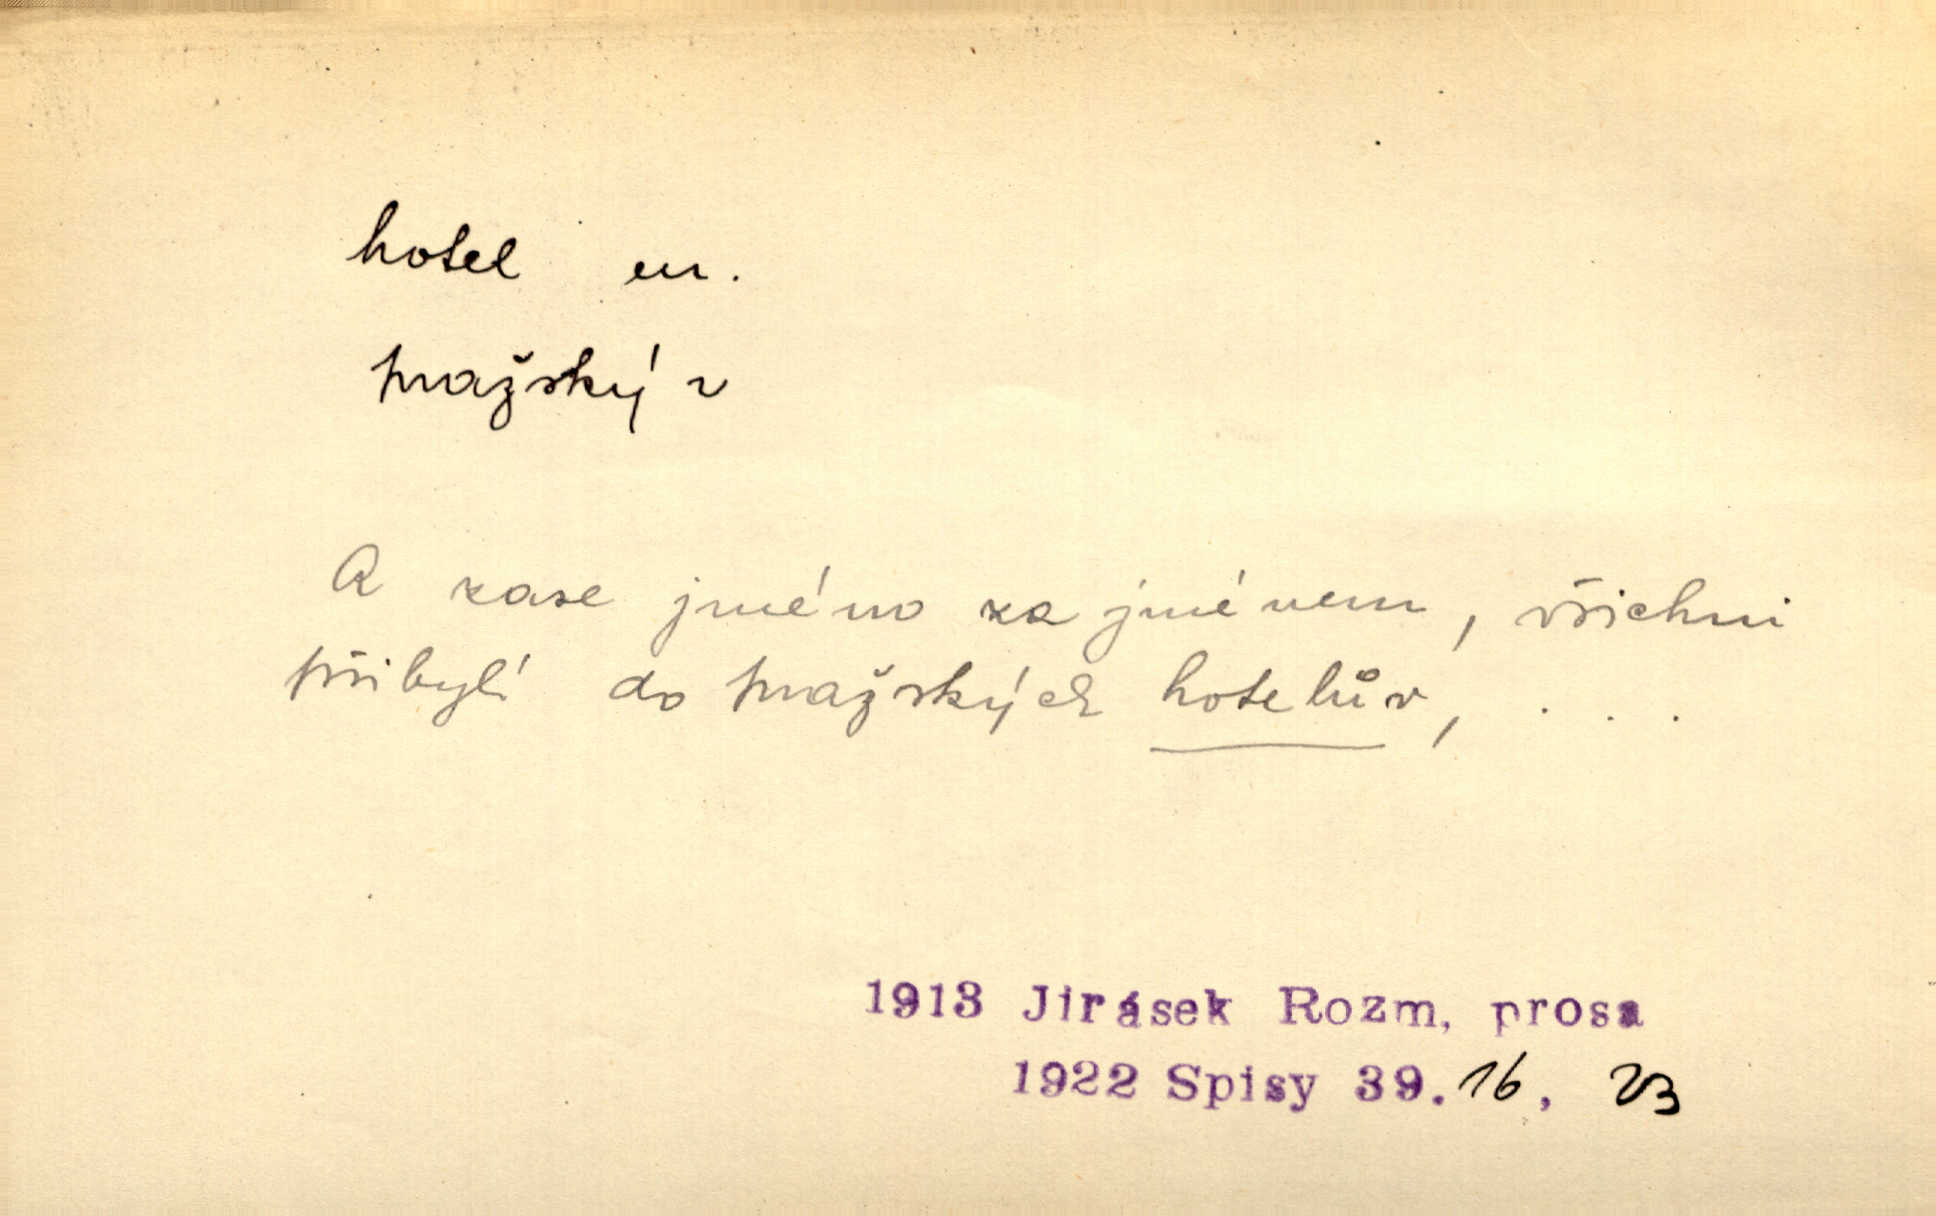 hotel m.
pražský v
A zase jméno za jménem, všichni
přibylí do pražských hotelův, . . .
1913 Jirásek Rozm, prosa
1922 Spisy 39. 16, 23